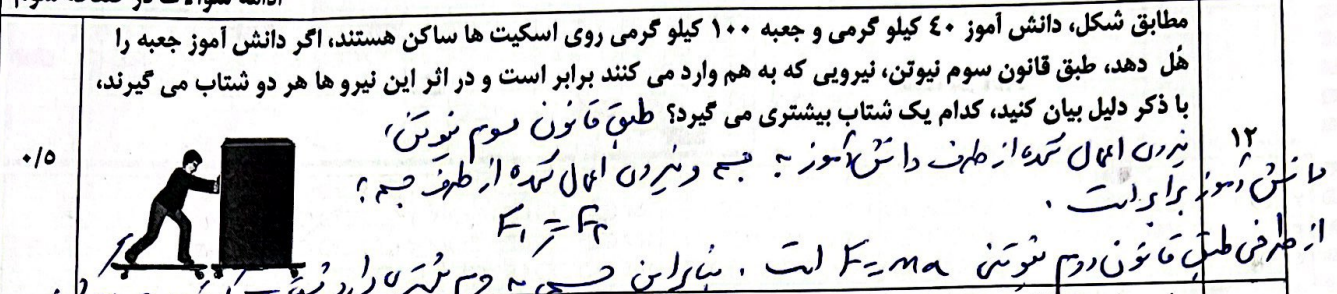 ادامه سوالات در صفحه سوم
مطابق شکل، دانش آموز ٤٠ کیلو گرمی و جعبه ١٠٠ کیلو گرمی روی اسکیت ها ساکن هستند، اگر دانش آموز جعبه را
هُل دهد، طبق قانون سوم نیوتن، نیرویی که به هم وارد می کنند برابر است و در اثر این نیرو ها هر دو شتاب می گیرند،
با ذکر دلیل بیان کنید، کدام یک شتاب بیشتری می گیرد؟ طبق قانون سوم نیوتن،
١٢
٠/٥
نیروی اعمال شده از طرف دانش آموز به جسم و نیروی اعمال شده از طرف جسم به
دانش آموز برابر است.
F₁ = F₂
از طرفی طبق قانون دوم نیوتن F=ma است. بنابراین جسمی که جرم بیشتری دارد